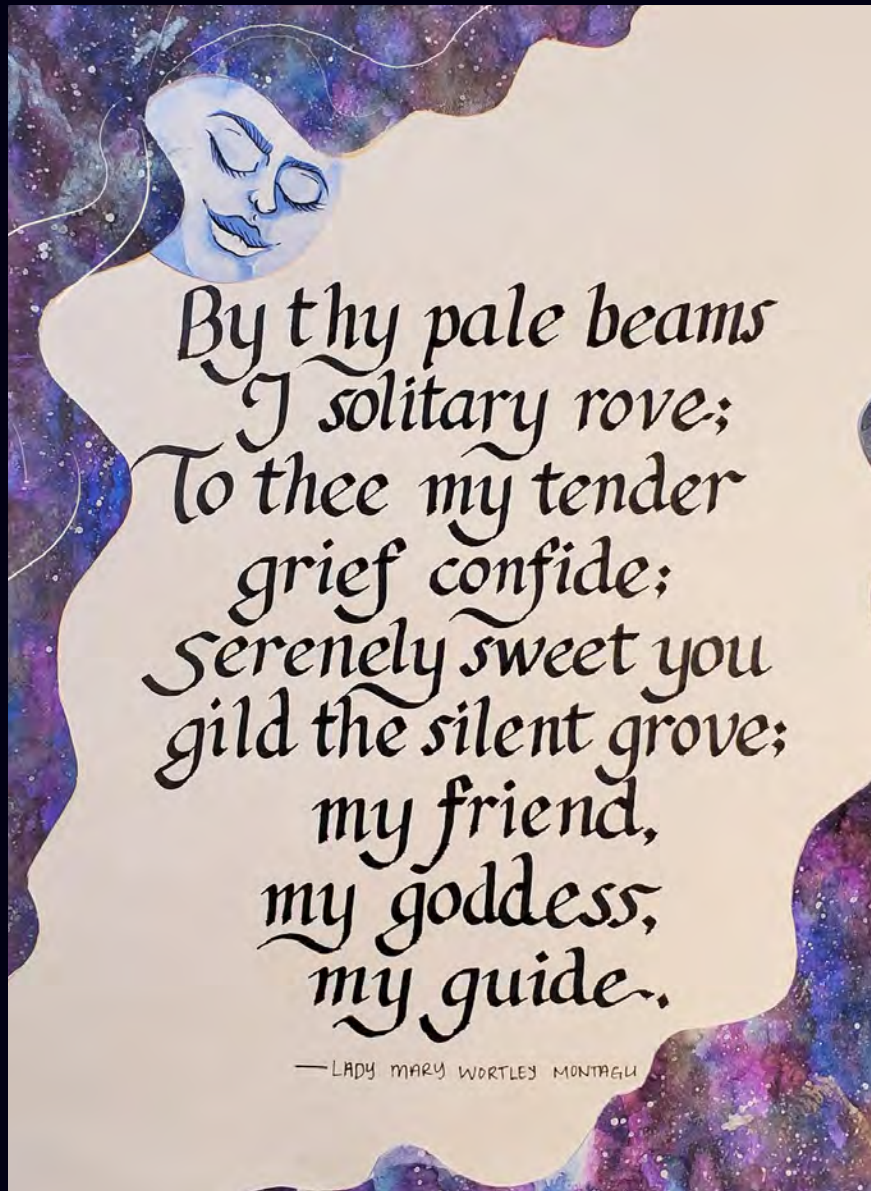 By thy pale beams
I solitary rove;
To thee my tender
grief confide;
Serenely sweet you
gild the silent grove;
my friend,
my goddess,
my guide.
—LADY MARY WORTLEY MONTAGU